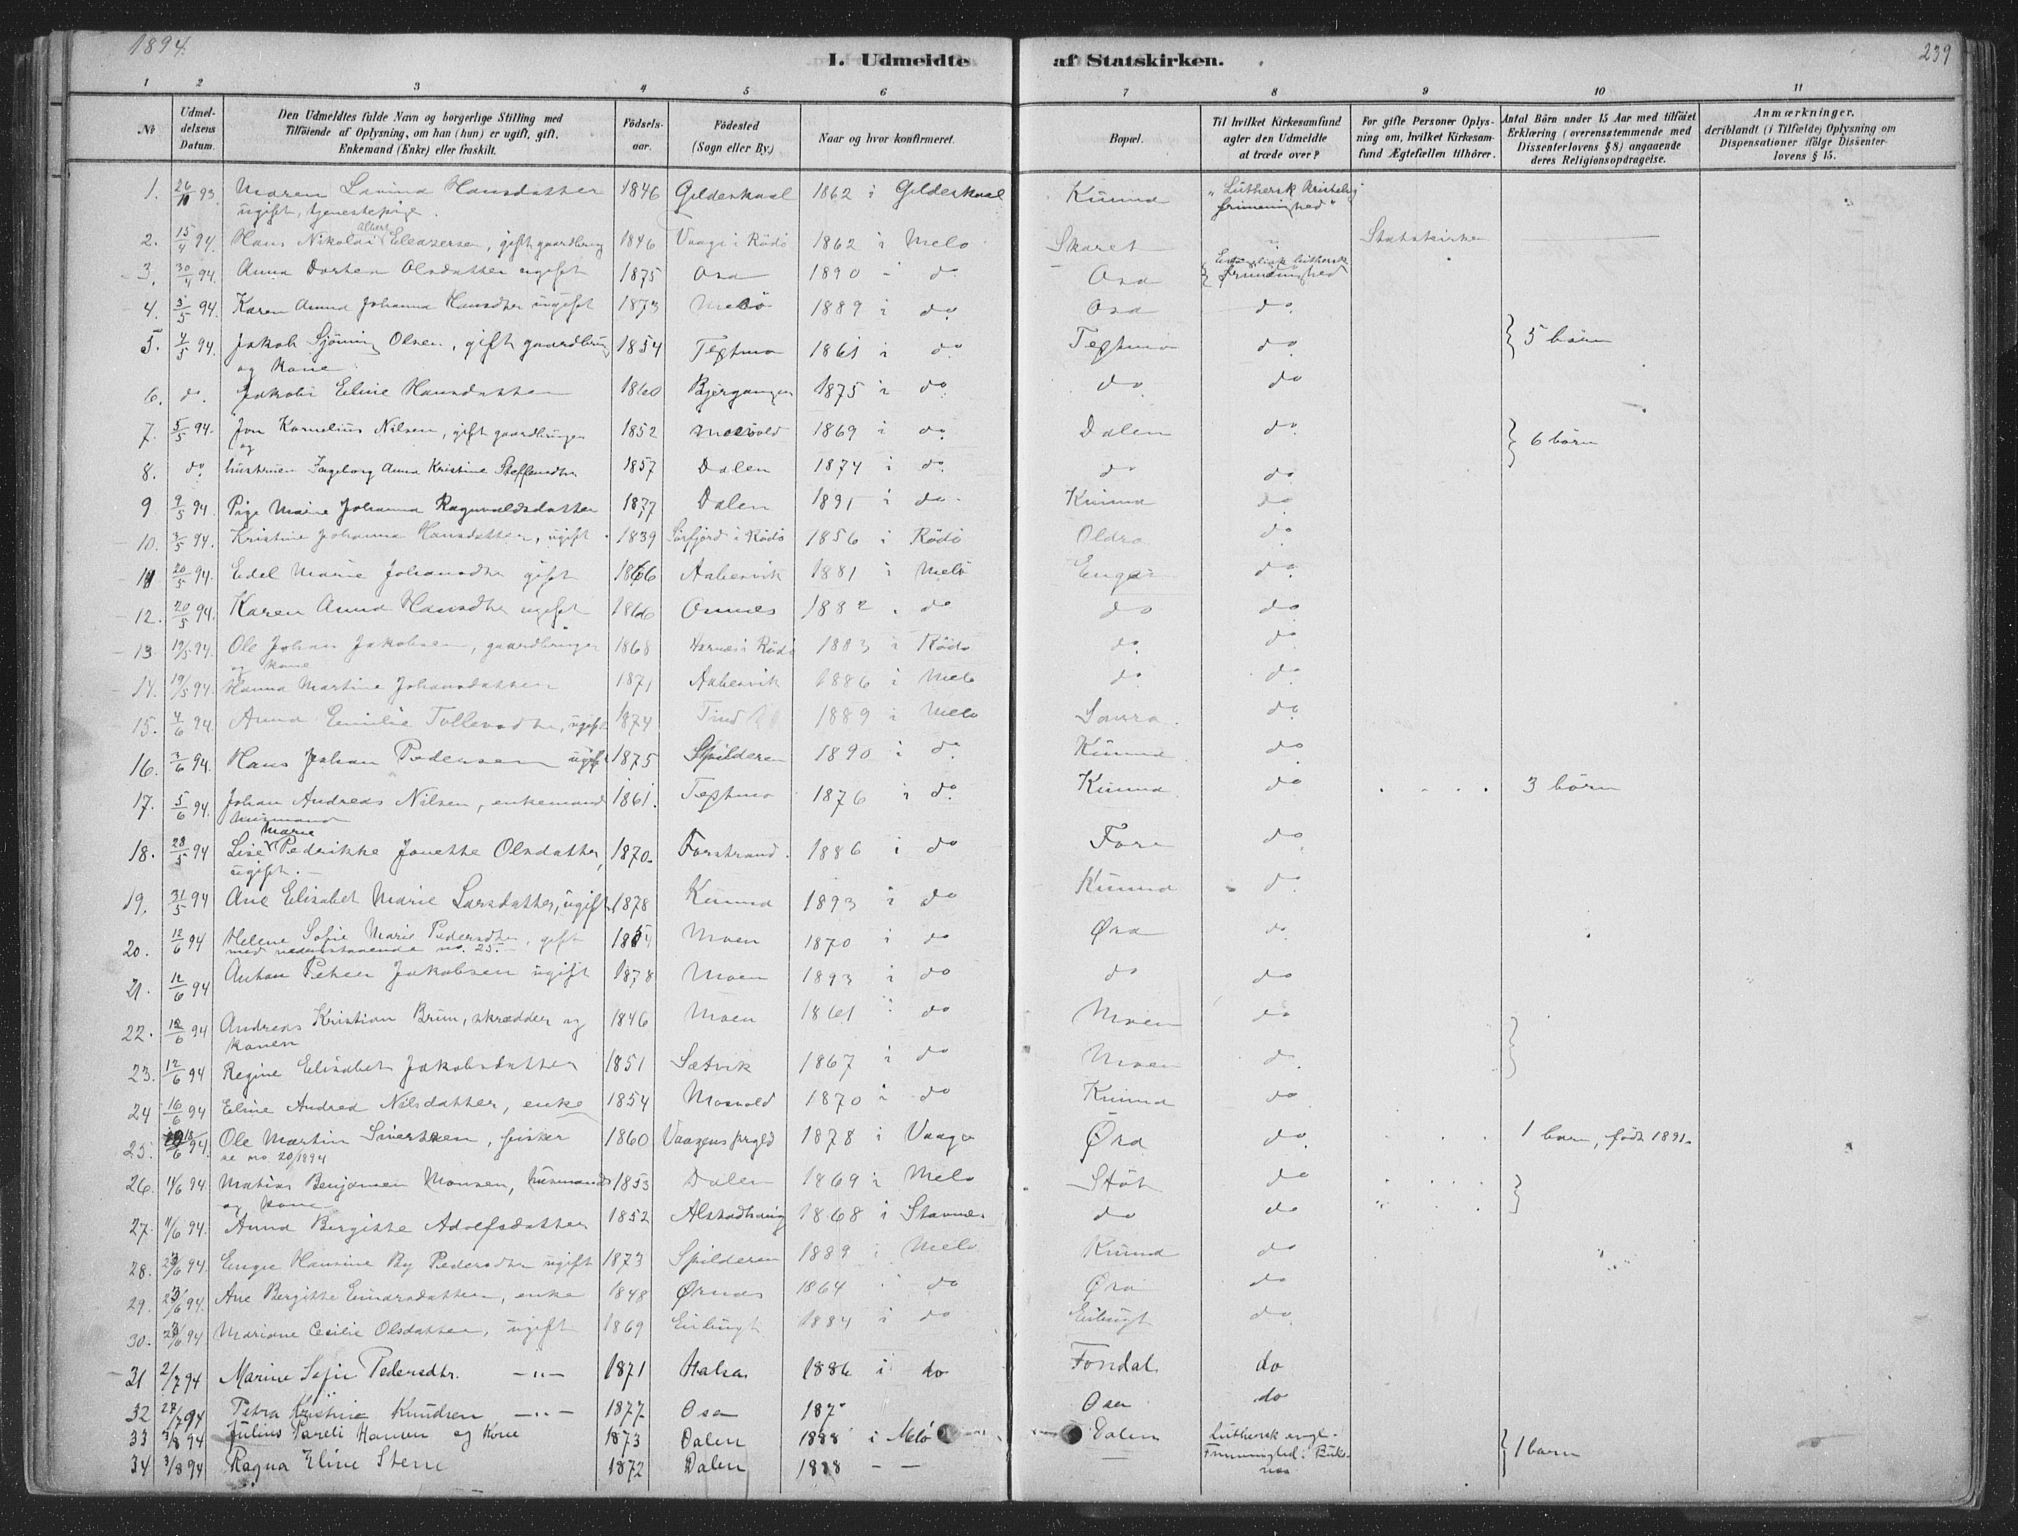 1894.
239
I. Udmeldte af Statskirken.
1 2 3 4 5 6 7 8 9 10 11
No
Udmeldelsens Datum.
Den Udmeldtes fulde Navn og borgerlige Stilling med Tilföiende af Oplysning, om han (hun) er ugift, gift, Enkemand (Enke) eller fraskilt.
Födselsaar.
Födested (Sogn eller By.)
Naar og hvor konfirmeret.
Bopæl.
Til hvilket Kirkesamfund agter den Udmeldte at træde over?
For gifte Personer Oplysning om, hvilket Kirkesamfund Ægtefællen tilhörer.
Antal Börn under 15 Aar med tilföiet Erklæring (overensstemmende med Dissenterlovens § 8) angaaende deres Religionsopdragelse.
Anmærkninger, deriblandt (i Tilfælde) Oplysning om Dispensationer ifölge Dissenterlovens § 15.
1. 26/10 93. Maren Lavina Hansdatter 1846 Gildeskaal 1862 i Gildeskaal Kunna "Luthersk kristelig
ugift, tjenestepige. frimenighed"
2. 15/4 94. Hans Nikolai Albert Eleazersen, gift gaardbrug 1846 Vaage i Rödö 1862 i Melö Skaret " Statskirken
3. 30/4 94. Anna Dortea Olsdatter ugift 1875 Osa 1890 - do Osa luthersk Frimenighed
4. 3/5 94. Karen Anna Johanna Hansdtr ugift 1873 Melö 1889 i do. Osa do.
5. 4/5 94. Jakob Sjöning Olsen, gift gaardbrug 1854 Teptmo 1861 i do Teptmo do. 5 börn
og kone
6. do. Jakobi Eline Hansdatter 1860 Bjergangen 1875 i do. do. do
7. 5/5 94. Jon Kornelius Nilsen, gift gaardbruger 1852 Mosvold 1869 i do. Dalen do. 6 börn
og
8. do. hustruen Ingeborg Anna Kristine Steffensdtr 1857 Dalen 1874 i do. do do
9 9/5 94. Pige Marie Johanna Ragnvaldsdatter 1877 Dalen 1891 i do. Kunna do
10. 3/5 94. Kristine Johanna Hansdatter, ugift 1839 Sörfjord i Rödö 1856 i Rödö Oldra do.
11 20/5 94. Edel Marie Johansdtr gift 1866 Aabervik 1881 i Melö Enga do.
12. 20/5 94. Karen Anna Hansdtr ugift 1866 Osnæs 1882 . do do do
13. 19/5 94. Ole Johan Jakobsen, gaardbruger 1868 i Rödö 1883 i Rödö do. do
og kone
14. 19/5 94. Hanna Martine Johansdatter 1871 Aabervik 1886 i Melö do. do.
15. 4/6 94. Anna Emilie Tollevsdtr, ugift 1874 Tind 1889 i Melö Saura. do.
16. 3/6 94. Hans Johan Pedersen ugift 1875 Spilderen 1890 i do. Kunna do
17. 5/6 94. Johan Andreas Nilsen, enkemand 1861. Teptmo 1876 i do. Kunna. do . . . . 3 börn
husmand
18. 28/5 94 Lise Marie Pedrikke Jonette Olsdatter, 1870. Forstrand. 1886 i do Fore do.
ugift. -
19. 31/5 94 Ane Elisabet Marie Larsdatter, ugift 1878 Kunna 1893 i do Kunna do.
20. 12/6 94 Helene Sofie Marie Pedersdtr, gift 1854 Moen 1870 i do Öra do.
med nedenstaaende no. 25.
21. 12/6 94 Anton Peter Jakobsen ugift 1878 Moen 1893 i do do do
22. 12/6 94 Andreas Kristian Brun, skrædder og 1846 Moen 1861 " do Moen do
konen
23. 12/6 94 Regine Elisabet Jakobsdatter 1851 Sætvik 1867 i do Moen do.
24 16/6 94 Eline Andrea Nilsdatter, enke 1854 Mosvold 1870 i do Kunna do
25. 18/6 94. Ole Martin Sivertsen, fisker 1860 Vaagens prgld 1878 i Vaage Øra do. . . . 1 barn, födt 1891.
se no. 20/1894
26. 11/6 94. Matias Benjamen Monsen, husmand 1853 Dalen 1869 i Melö Stöt do . . . .
og kone
27. 11/6 94. Anna Bergitte Adolfsdatter 1852 Alstadhaug 1868 i Stavnæs do do " . . .
28. 23/6 94. Hansine By Pedersdtr ugift 1873 Spilderen 1889 i Melö Kunna do
29. 23/6 94. Ane Bergitte Einarsdatter, enke 1848 Ørnæs 1864 " do Öra do
30. 23/6 94 Mariane Cecilie Olsdatter, ugift 1869 Esbugt 1884 i do Esbugt do.
31 2/7 94 Marine Sofie Pedersdtr. -"- 1871 Halsa 1886 i do Fondal do
32 28/7 94 Petra Kristine Knudsen -"- 1877 Osen 187 Osen do
33 3/8 94 Julius Pareli Hansen og Kone 1873 Dalen 1888 i Melö Dalen Luthersk evgl. 1 barn
34 3/8 94 Ragna Eline Steen 1872 Dalen 1888 - - - Frimenighed.